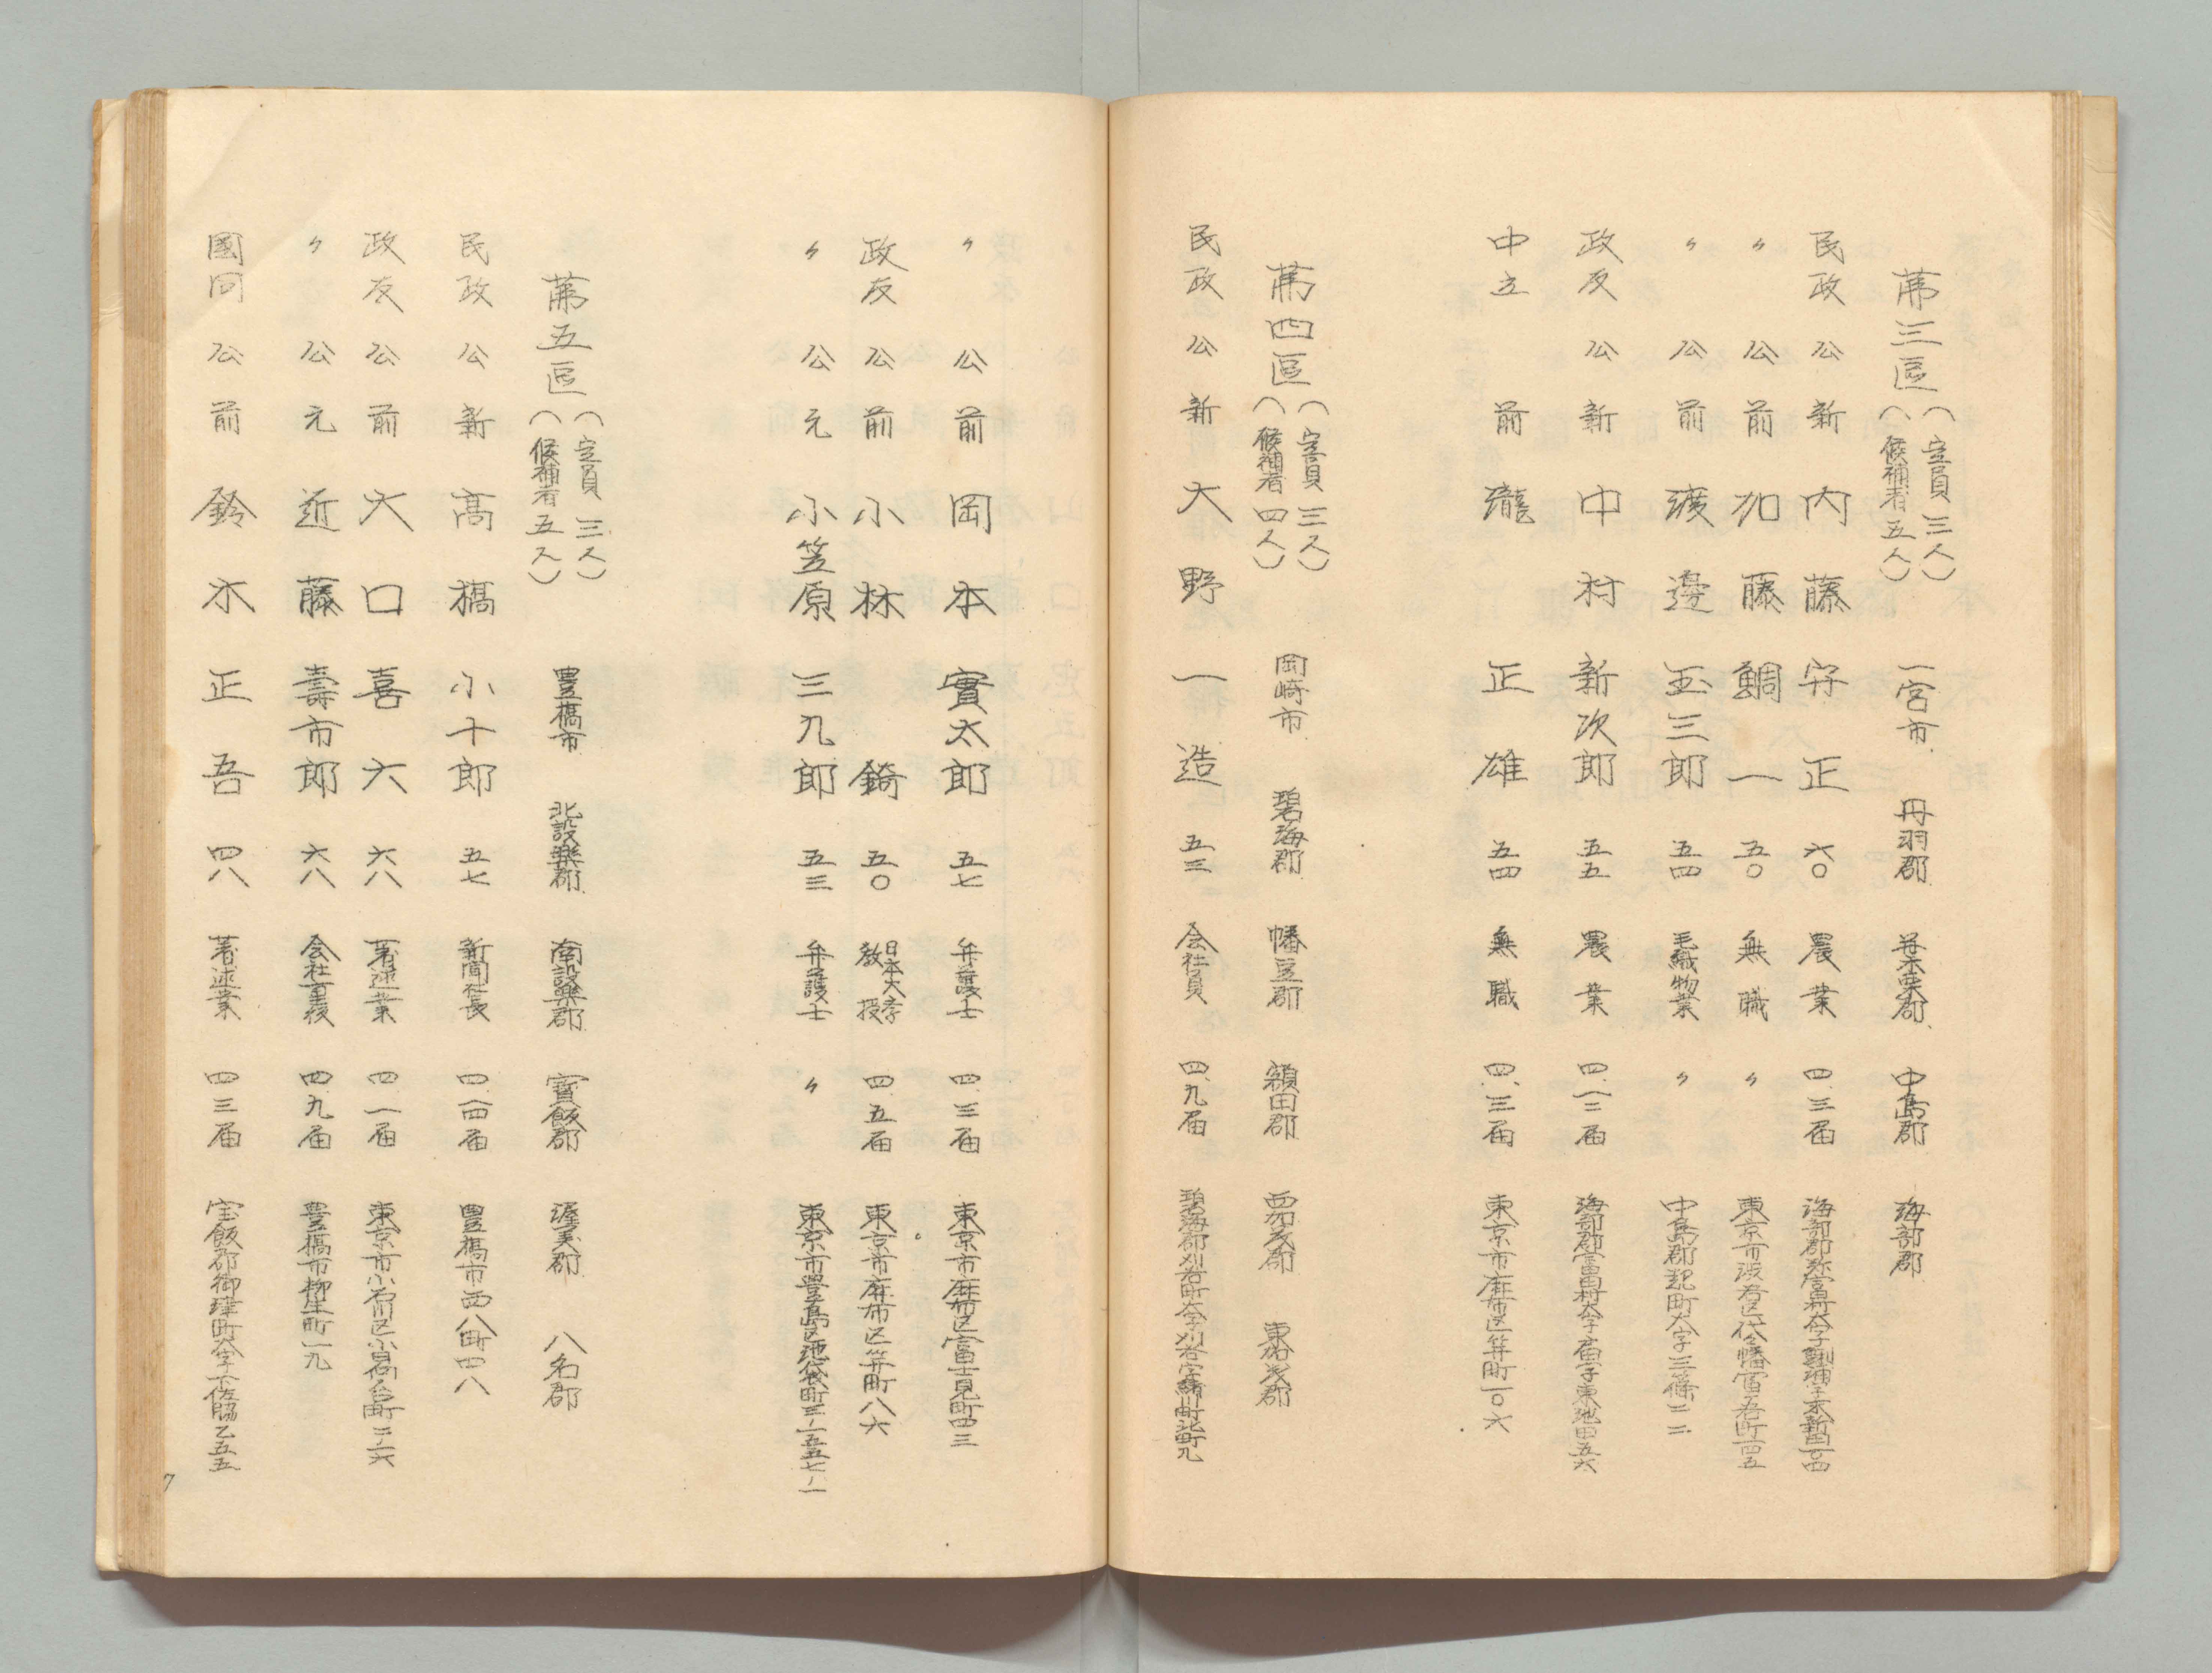 第三區（定員三人）（候補者五人） 一宮市 丹羽郡 葉栗郡 中島郡 海部郡
民政 公 新 內藤守正 六〇 農業 四、三届 海部郡弥富町大字
〃 公 前 加藤鯛一 五〇 無職 〃 東京市渋谷区代々幡富ヶ谷町一四五
〃 公 前 渡邊玉三郎 五四 毛織物業 〃 中島郡起町大字三條二二
政友 公 新 中村新次郎 五五 農業 四、一二届 海部郡富田村大字
中立 前 瀧正雄 五四 無職 四、三届 東京市麻布区笄町一〇六
第四區（定員三人）（候補者四人） 岡崎市 碧海郡 幡豆郡 額田郡 西加茂郡 東加茂郡
民政 公 新 大野一造 五三 会社員 四、九届 碧海郡刈谷町大字刈谷字
〃 公 前 岡本實太郎 五七 弁護士 四、三届 東京市麻布区富士見町四三
政友 公 前 小林錡 五〇 日本大学教授 四、五届 東京市麻布区笄町八六
〃 公 元 小笠原三九郎 五三 弁護士 〃 東京市豊島区池袋町三ノ一五五七ノ一
第五區（定員三人）（候補者五人） 豊橋市 北設楽郡 南設楽郡 寳飯郡 渥美郡 八名郡
民政 公 新 髙橋小十郎 五七 新聞社長 四、一四届 豊橋市西八町四八
政友 公 前 大口喜六 六八 著述業 四、一届 東京市小石川区小日向台町二ノ六
〃 公 元 近藤壽市郎 六八 会社重役 四、九届 豊橋市柳生町一九
國同 公 前 鈴木正吾 四八 著述業 四、三届 宝飯郡御津町大字下佐脇乙五五
7